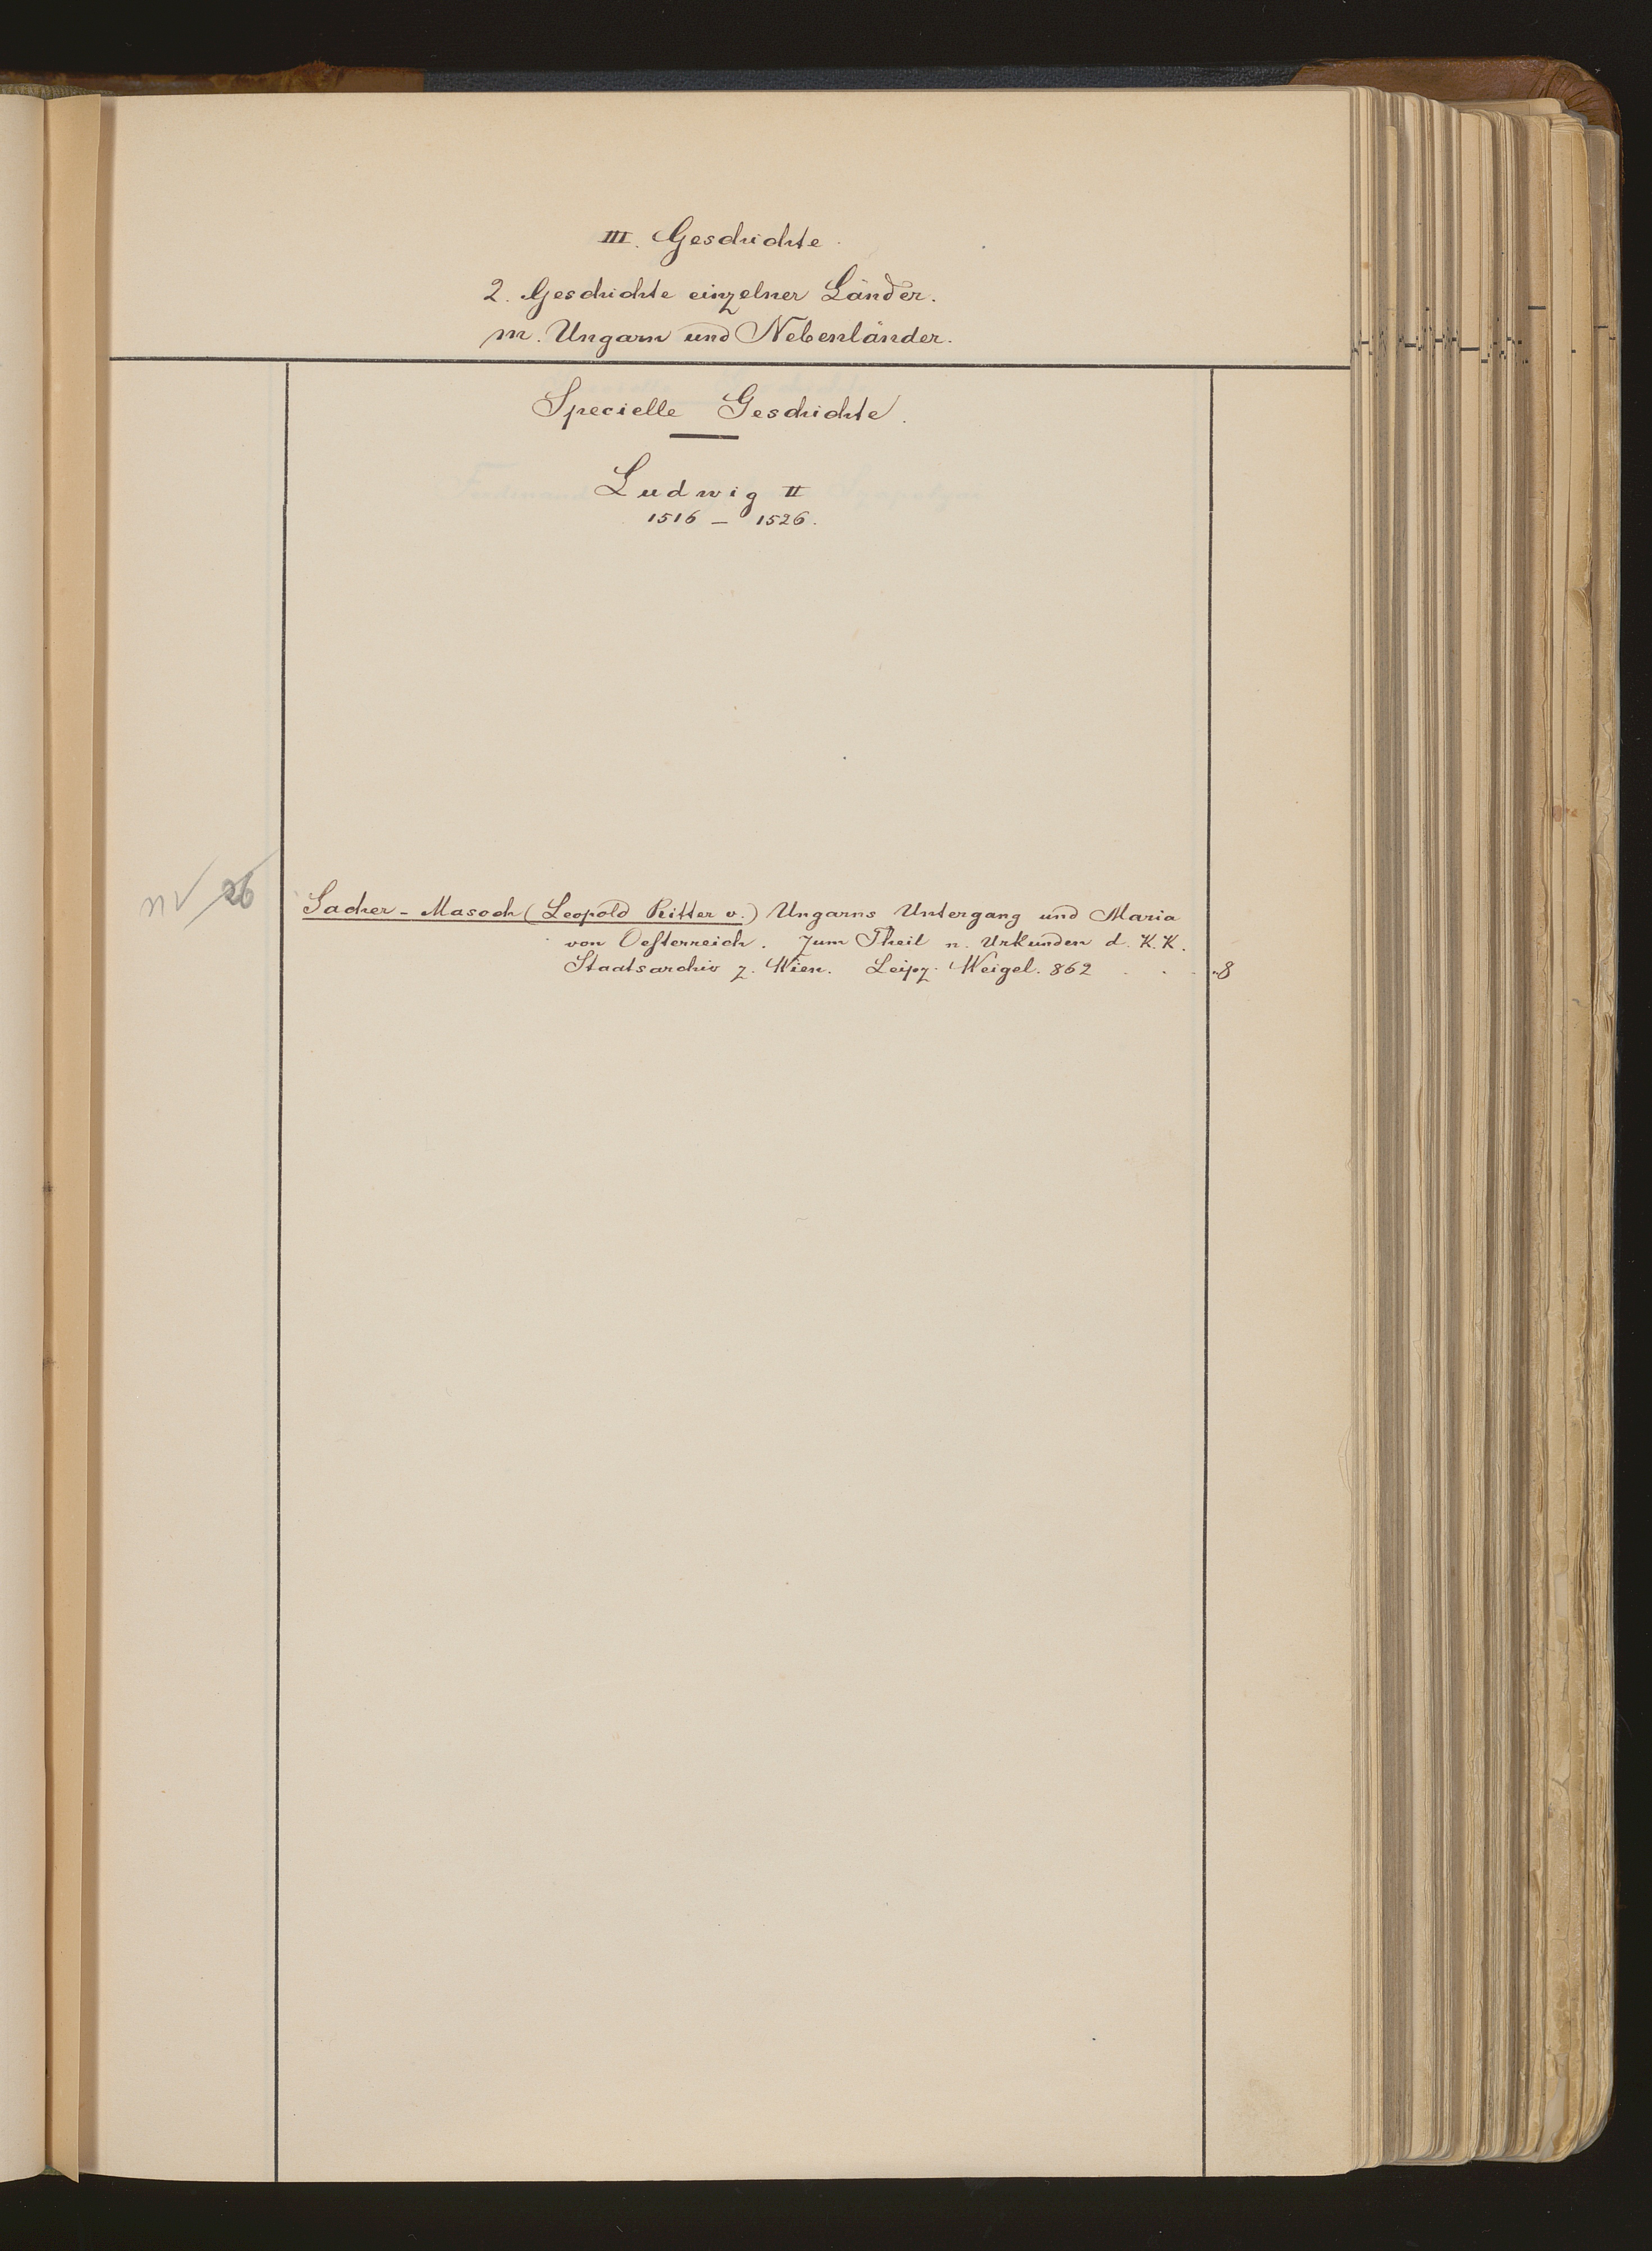 III. Geschichte.
2. Geschichte einzelner Länder.
m. Ungarn und Nebenländer.
Specielle Geschichte.
Ludwig II
1516 - 1526.
26
Sacher-Masoch (Leopold Ritter v.) Ungarns Untergang und Maria
von Oesterreich. Zum Theil n. Urkunden d. K. K.
Staatsarchiv z. Wien. Leipz. Weigel. 862 . . . 8